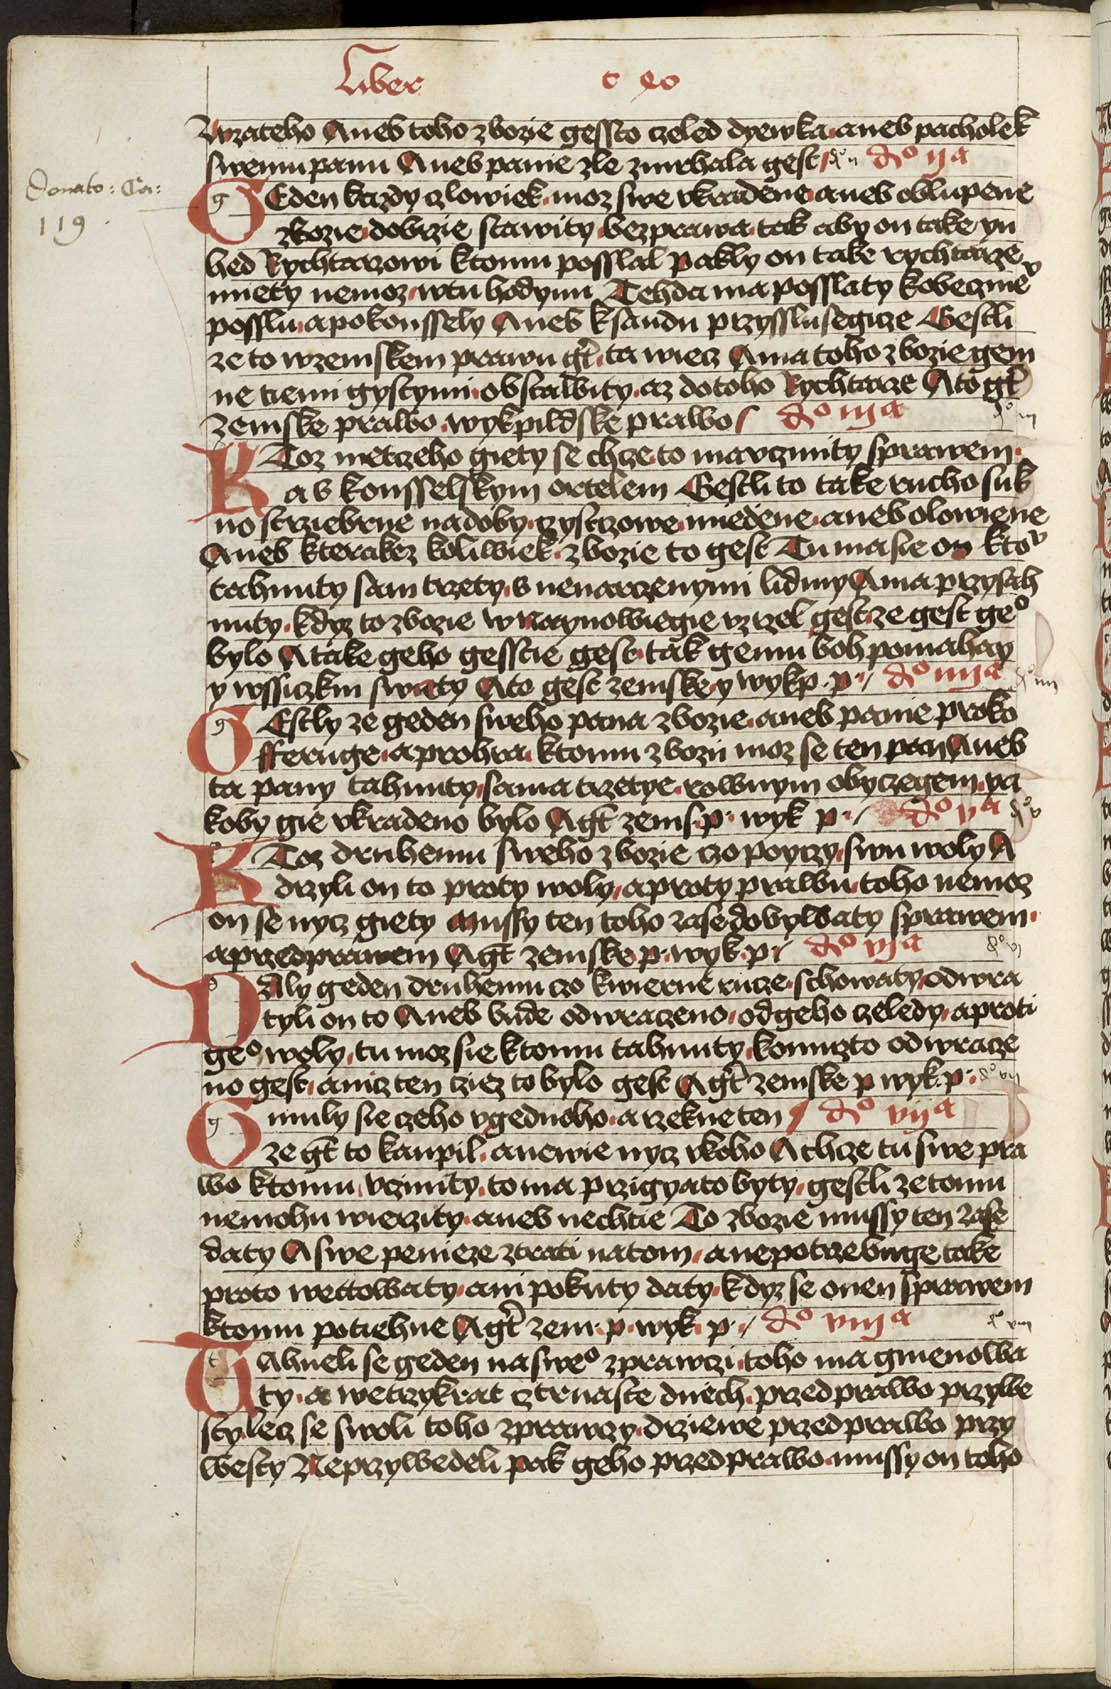 Liber c xo
wzateho Aneb toho zbozie gessto czeled dyewka aneb pacholek
swemu panu Aneb panie zle zmrhala gest do ii do ija
GEden kazdy czlowiek moz swe vkradene aneb oblupene
Donato: Ca:
119
zbozie dobrzie stawity bez prawa tak aby on take yn
hed Rychtarzowi ktomu posslal pakly on take rychtarze
miety nemoz wtu hodynu Tehda ma posslaty kobeczme
posslu a pokonssely Aneb ksandu przysslusegicze Gestli
ze to wzemskem prawu gt ta wiecz A ma toho zbozie gem
ne tiemi gystymi obstalbity az dotoho Rychtarze Ato gt
Zemske prawo wykpildske prawo do iija
KToz nietczeho giety se chcze to ma vczinity sprawem
a s konsselskym ortelem Gestli to take rucho suk
no strziebrne nadoby czysczowe miedene aneb olowiene
Aneb kterakez koliwiek zbozie to gest Tu ma sie on kto
tahnuty sam trzety s nenarzenymi lidmy A ma przysah
nuty kdyz to zbozie w Naynowiegie vzrzel gest ze gest geo
bylo A take geho gesstie gest tak gemu boh pomahay
y wssiczkni swaty Ato gest zemske y wykp. p. do iiija
GEstly ze geden sweho pana zbozie aneb panie proko
ssteruge a prohra ktomu zbozu moz se ten pan Aneb
ta pany tahnuty sama trzetye rownym obyczegem ya
koby gie vkradeno bylo Agt zems. p. wyk p. do va
KToz druhemu sweho zbozie czo poyczy swu woly A
drzyli on to proty woly a proty prawu toho nemoz
on se nycz giety mussy ten toho zase dobylbaty sprawem
a przed prawem Agt zemske. p. wyk. p. do vja
DAly geden druhemu czo kwierne rucze schowaty odwra
tyli on to Aneb bude odwraczeno od geho czeledy a proti
geo woly tu moz sie ktomu tahnuty komuzto odwracze
no gest aniz ten cziez to bylo gest Agt zemske p wyk. p. do vii
Gmuly sie czeho vgednoho a rzekne ten do vija
ze gt to kaupil a newie nycz vkoho A chcze tu swe pra
wo ktomu vczinity to ma przigyato byty gestli ze tomu
nemohu wierzity aneb nechtie To zbozie mussy ten zase
daty A swe penieze ztrati natom a nepotrzebuge take
proto wettowaty ani pokuty daty kdyz se onen sprawem
ktomu potiehne Agt zem. p. wyk. p. do viija
TAhneli se geden na sweo zprawczi toho ma gmenowa
ty a wetrzykrat cztrnaste dnech przed prawo przywe
sty lecz se swoli toho zprawczy drziewe przed prawo przy
westy Neprzywedeli pak geho przed prawo mussy on toho